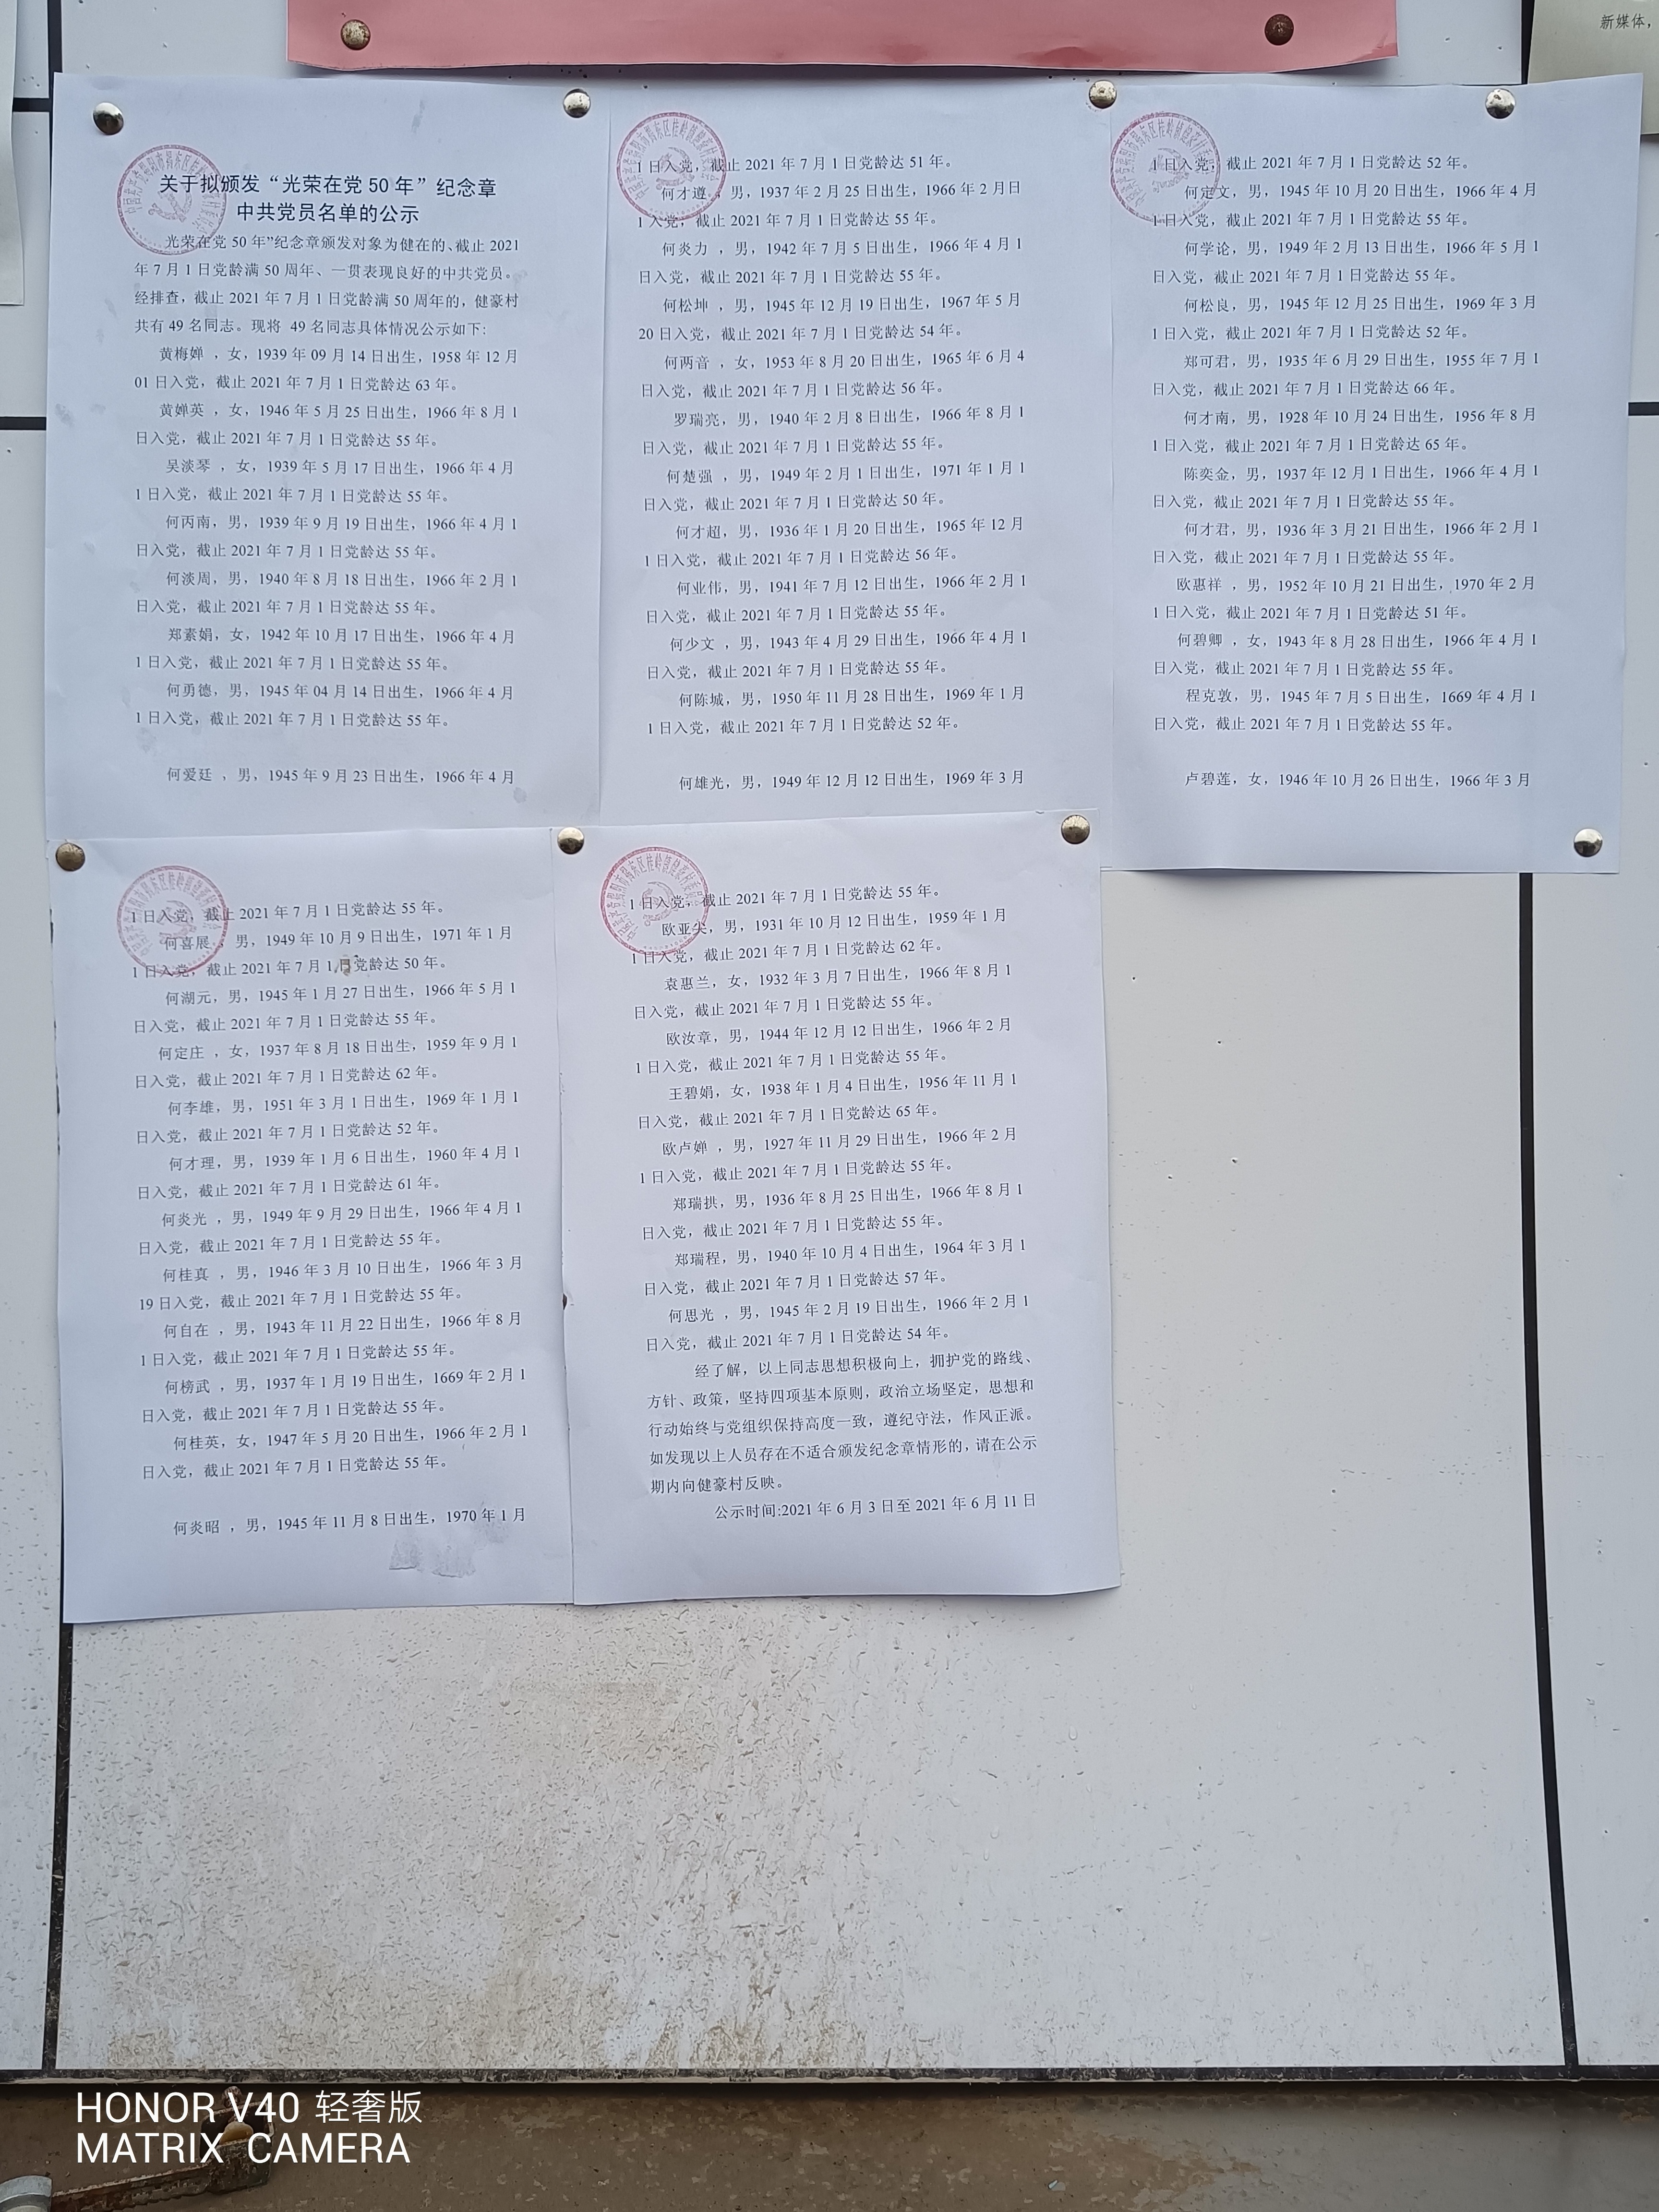 新媒体，
关于拟颁发“光荣在党 50 年”纪念章
中共党员名单的公示
光荣在党 50 年”纪念章颁发对象为健在的、截止 2021
年 7 月 1 日党龄满 50 周年、一贯表现良好的中共党员。
经排查，截止 2021 年 7 月 1 日党龄满 50 周年的，健豪村
共有 49 名同志。现将 49 名同志具体情况公示如下:
黄梅婵 ，女，1939 年 09 月 14 日出生，1958 年 12 月
01 日入党，截止 2021 年 7 月 1 日党龄达 63 年。
黄婵英 ，女，1946 年 5 月 25 日出生，1966 年 8 月 1
日入党，截止 2021 年 7 月 1 日党龄达 55 年。
吴淡琴 ，女，1939 年 5 月 17 日出生，1966 年 4 月
1 日入党，截止 2021 年 7 月 1 日党龄达 55 年。
何丙南，男，1939 年 9 月 19 日出生，1966 年 4 月 1
日入党，截止 2021 年 7 月 1 日党龄达 55 年。
何淡周，男，1940 年 8 月 18 日出生，1966 年 2 月 1
日入党，截止 2021 年 7 月 1 日党龄达 55 年。
郑素娟，女，1942 年 10 月 17 日出生，1966 年 4 月
1 日入党，截止 2021 年 7 月 1 日党龄达 55 年。
何勇德，男，1945 年 04 月 14 日出生，1966 年 4 月
1 日入党，截止 2021 年 7 月 1 日党龄达 55 年。
何爱廷 ，男，1945 年 9 月 23 日出生，1966 年 4 月
1 日入党，截止 2021 年 7 月 1 日党龄达 51 年。
何才遵，男，1937 年 2 月 25 日出生，1966 年 2 月日
1 入党，截止 2021 年 7 月 1 日党龄达 55 年。
何炎力 ，男，1942 年 7 月 5 日出生，1966 年 4 月 1
日入党，截止 2021 年 7 月 1 日党龄达 55 年。
何松坤 ，男，1945 年 12 月 19 日出生，1967 年 5 月
20 日入党，截止 2021 年 7 月 1 日党龄达 54 年。
何两音 ，女，1953 年 8 月 20 日出生，1965 年 6 月 4
日入党，截止 2021 年 7 月 1 日党龄达 56 年。
罗瑞亮，男，1940 年 2 月 8 日出生，1966 年 8 月 1
日入党，截止 2021 年 7 月 1 日党龄达 55 年。
何楚强 ，男，1949 年 2 月 1 日出生，1971 年 1 月 1
日入党，截止 2021 年 7 月 1 日党龄达 50 年。
何才超，男，1936 年 1 月 20 日出生，1965 年 12 月
1 日入党，截止 2021 年 7 月 1 日党龄达 56 年。
何业伟，男，1941 年 7 月 12 日出生，1966 年 2 月 1
日入党，截止 2021 年 7 月 1 日党龄达 55 年。
何少文 ，男，1943 年 4 月 29 日出生，1966 年 4 月 1
日入党，截止 2021 年 7 月 1 日党龄达 55 年。
何陈城，男，1950 年 11 月 28 日出生，1969 年 1 月
1 日入党，截止 2021 年 7 月 1 日党龄达 52 年。
何雄光，男，1949 年 12 月 12 日出生，1969 年 3 月
1 日入党，截止 2021 年 7 月 1 日党龄达 52 年。
何定文，男，1945 年 10 月 20 日出生，1966 年 4 月
1 日入党，截止 2021 年 7 月 1 日党龄达 55 年。
何学论，男，1949 年 2 月 13 日出生，1966 年 5 月 1
日入党，截止 2021 年 7 月 1 日党龄达 55 年。
何松良，男，1945 年 12 月 25 日出生，1969 年 3 月
1 日入党，截止 2021 年 7 月 1 日党龄达 52 年。
郑可君，男，1935 年 6 月 29 日出生，1955 年 7 月 1
日入党，截止 2021 年 7 月 1 日党龄达 66 年。
何才南，男，1928 年 10 月 24 日出生，1956 年 8 月
1 日入党，截止 2021 年 7 月 1 日党龄达 65 年。
陈奕金，男，1937 年 12 月 1 日出生，1966 年 4 月 1
日入党，截止 2021 年 7 月 1 日党龄达 55 年。
何才君，男，1936 年 3 月 21 日出生，1966 年 2 月 1
日入党，截止 2021 年 7 月 1 日党龄达 55 年。
欧惠祥 ，男，1952 年 10 月 21 日出生，1970 年 2 月
1 日入党，截止 2021 年 7 月 1 日党龄达 51 年。
何碧卿 ，女，1943 年 8 月 28 日出生，1966 年 4 月 1
日入党，截止 2021 年 7 月 1 日党龄达 55 年。
程克敦，男，1945 年 7 月 5 日出生，1669 年 4 月 1
日入党，截止 2021 年 7 月 1 日党龄达 55 年。
卢碧莲，女，1946 年 10 月 26 日出生，1966 年 3 月
1 日入党，截止 2021 年 7 月 1 日党龄达 55 年。
何喜展 ，男，1949 年 10 月 9 日出生，1971 年 1 月
1 日入党，截止 2021 年 7 月 1 日党龄达 50 年。
何湖元，男，1945 年 1 月 27 日出生，1966 年 5 月 1
日入党，截止 2021 年 7 月 1 日党龄达 55 年。
何定庄 ，女，1937 年 8 月 18 日出生，1959 年 9 月 1
日入党，截止 2021 年 7 月 1 日党龄达 62 年。
何李雄，男，1951 年 3 月 1 日出生，1969 年 1 月 1
日入党，截止 2021 年 7 月 1 日党龄达 52 年。
何才理，男，1939 年 1 月 6 日出生，1960 年 4 月 1
日入党，截止 2021 年 7 月 1 日党龄达 61 年。
何炎光 ，男，1949 年 9 月 29 日出生，1966 年 4 月 1
日入党，截止 2021 年 7 月 1 日党龄达 55 年。
何桂真 ，男，1946 年 3 月 10 日出生，1966 年 3 月
19 日入党，截止 2021 年 7 月 1 日党龄达 55 年。
何自在 ，男，1943 年 11 月 22 日出生，1966 年 8 月
1 日入党，截止 2021 年 7 月 1 日党龄达 55 年。
何榜武 ，男，1937 年 1 月 19 日出生，1669 年 2 月 1
日入党，截止 2021 年 7 月 1 日党龄达 55 年。
何桂英，女，1947 年 5 月 20 日出生，1966 年 2 月 1
日入党，截止 2021 年 7 月 1 日党龄达 55 年。
何炎昭 ，男，1945 年 11 月 8 日出生，1970 年 1 月
1 日入党，截止 2021 年 7 月 1 日党龄达 55 年。
欧亚尖，男，1931 年 10 月 12 日出生，1959 年 1 月
1 日入党，截止 2021 年 7 月 1 日党龄达 62 年。
袁惠兰，女，1932 年 3 月 7 日出生，1966 年 8 月 1
日入党，截止 2021 年 7 月 1 日党龄达 55 年。
欧汝章，男，1944 年 12 月 12 日出生，1966 年 2 月
1 日入党，截止 2021 年 7 月 1 日党龄达 55 年。
王碧娟，女，1938 年 1 月 4 日出生，1956 年 11 月 1
日入党，截止 2021 年 7 月 1 日党龄达 65 年。
欧卢婵 ，男，1927 年 11 月 29 日出生，1966 年 2 月
1 日入党，截止 2021 年 7 月 1 日党龄达 55 年。
郑瑞拱，男，1936 年 8 月 25 日出生，1966 年 8 月 1
日入党，截止 2021 年 7 月 1 日党龄达 55 年。
郑瑞程，男，1940 年 10 月 4 日出生，1964 年 3 月 1
日入党，截止 2021 年 7 月 1 日党龄达 57 年。
何思光 ，男，1945 年 2 月 19 日出生，1966 年 2 月 1
日入党，截止 2021 年 7 月 1 日党龄达 54 年。
经了解，以上同志思想积极向上，拥护党的路线、
方针、政策，坚持四项基本原则，政治立场坚定，思想和
行动始终与党组织保持高度一致，遵纪守法，作风正派。
如发现以上人员存在不适合颁发纪念章情形的，请在公示
期内向健豪村反映。
公示时间:2021 年 6 月 3 日至 2021 年 6 月 11 日
HONOR V40 轻奢版
MATRIX CAMERA